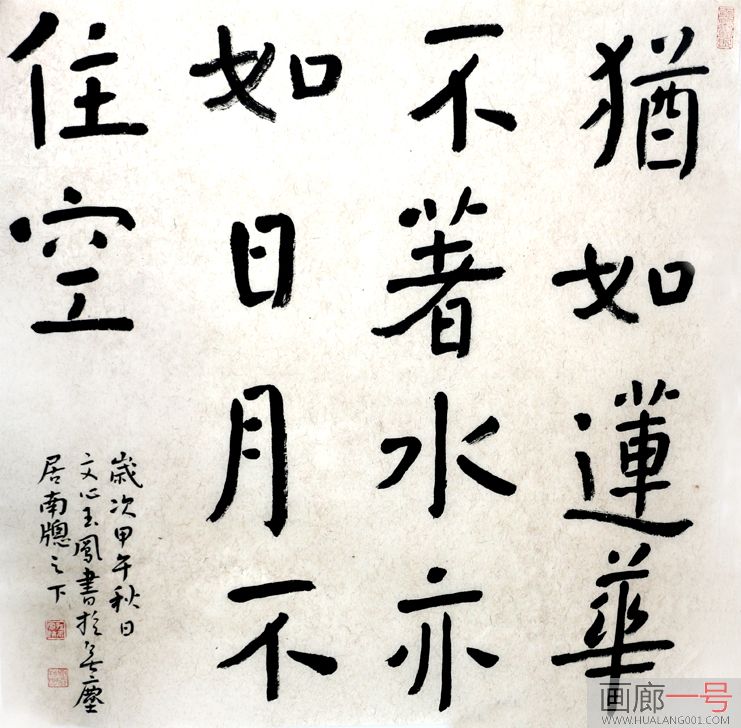 猶如蓮華
不著水亦
如日月不
住空
歲次甲午秋日
文心玉鳳書於无塵
居南牕之下
画廊一号
WWW.HUALANG001.COM